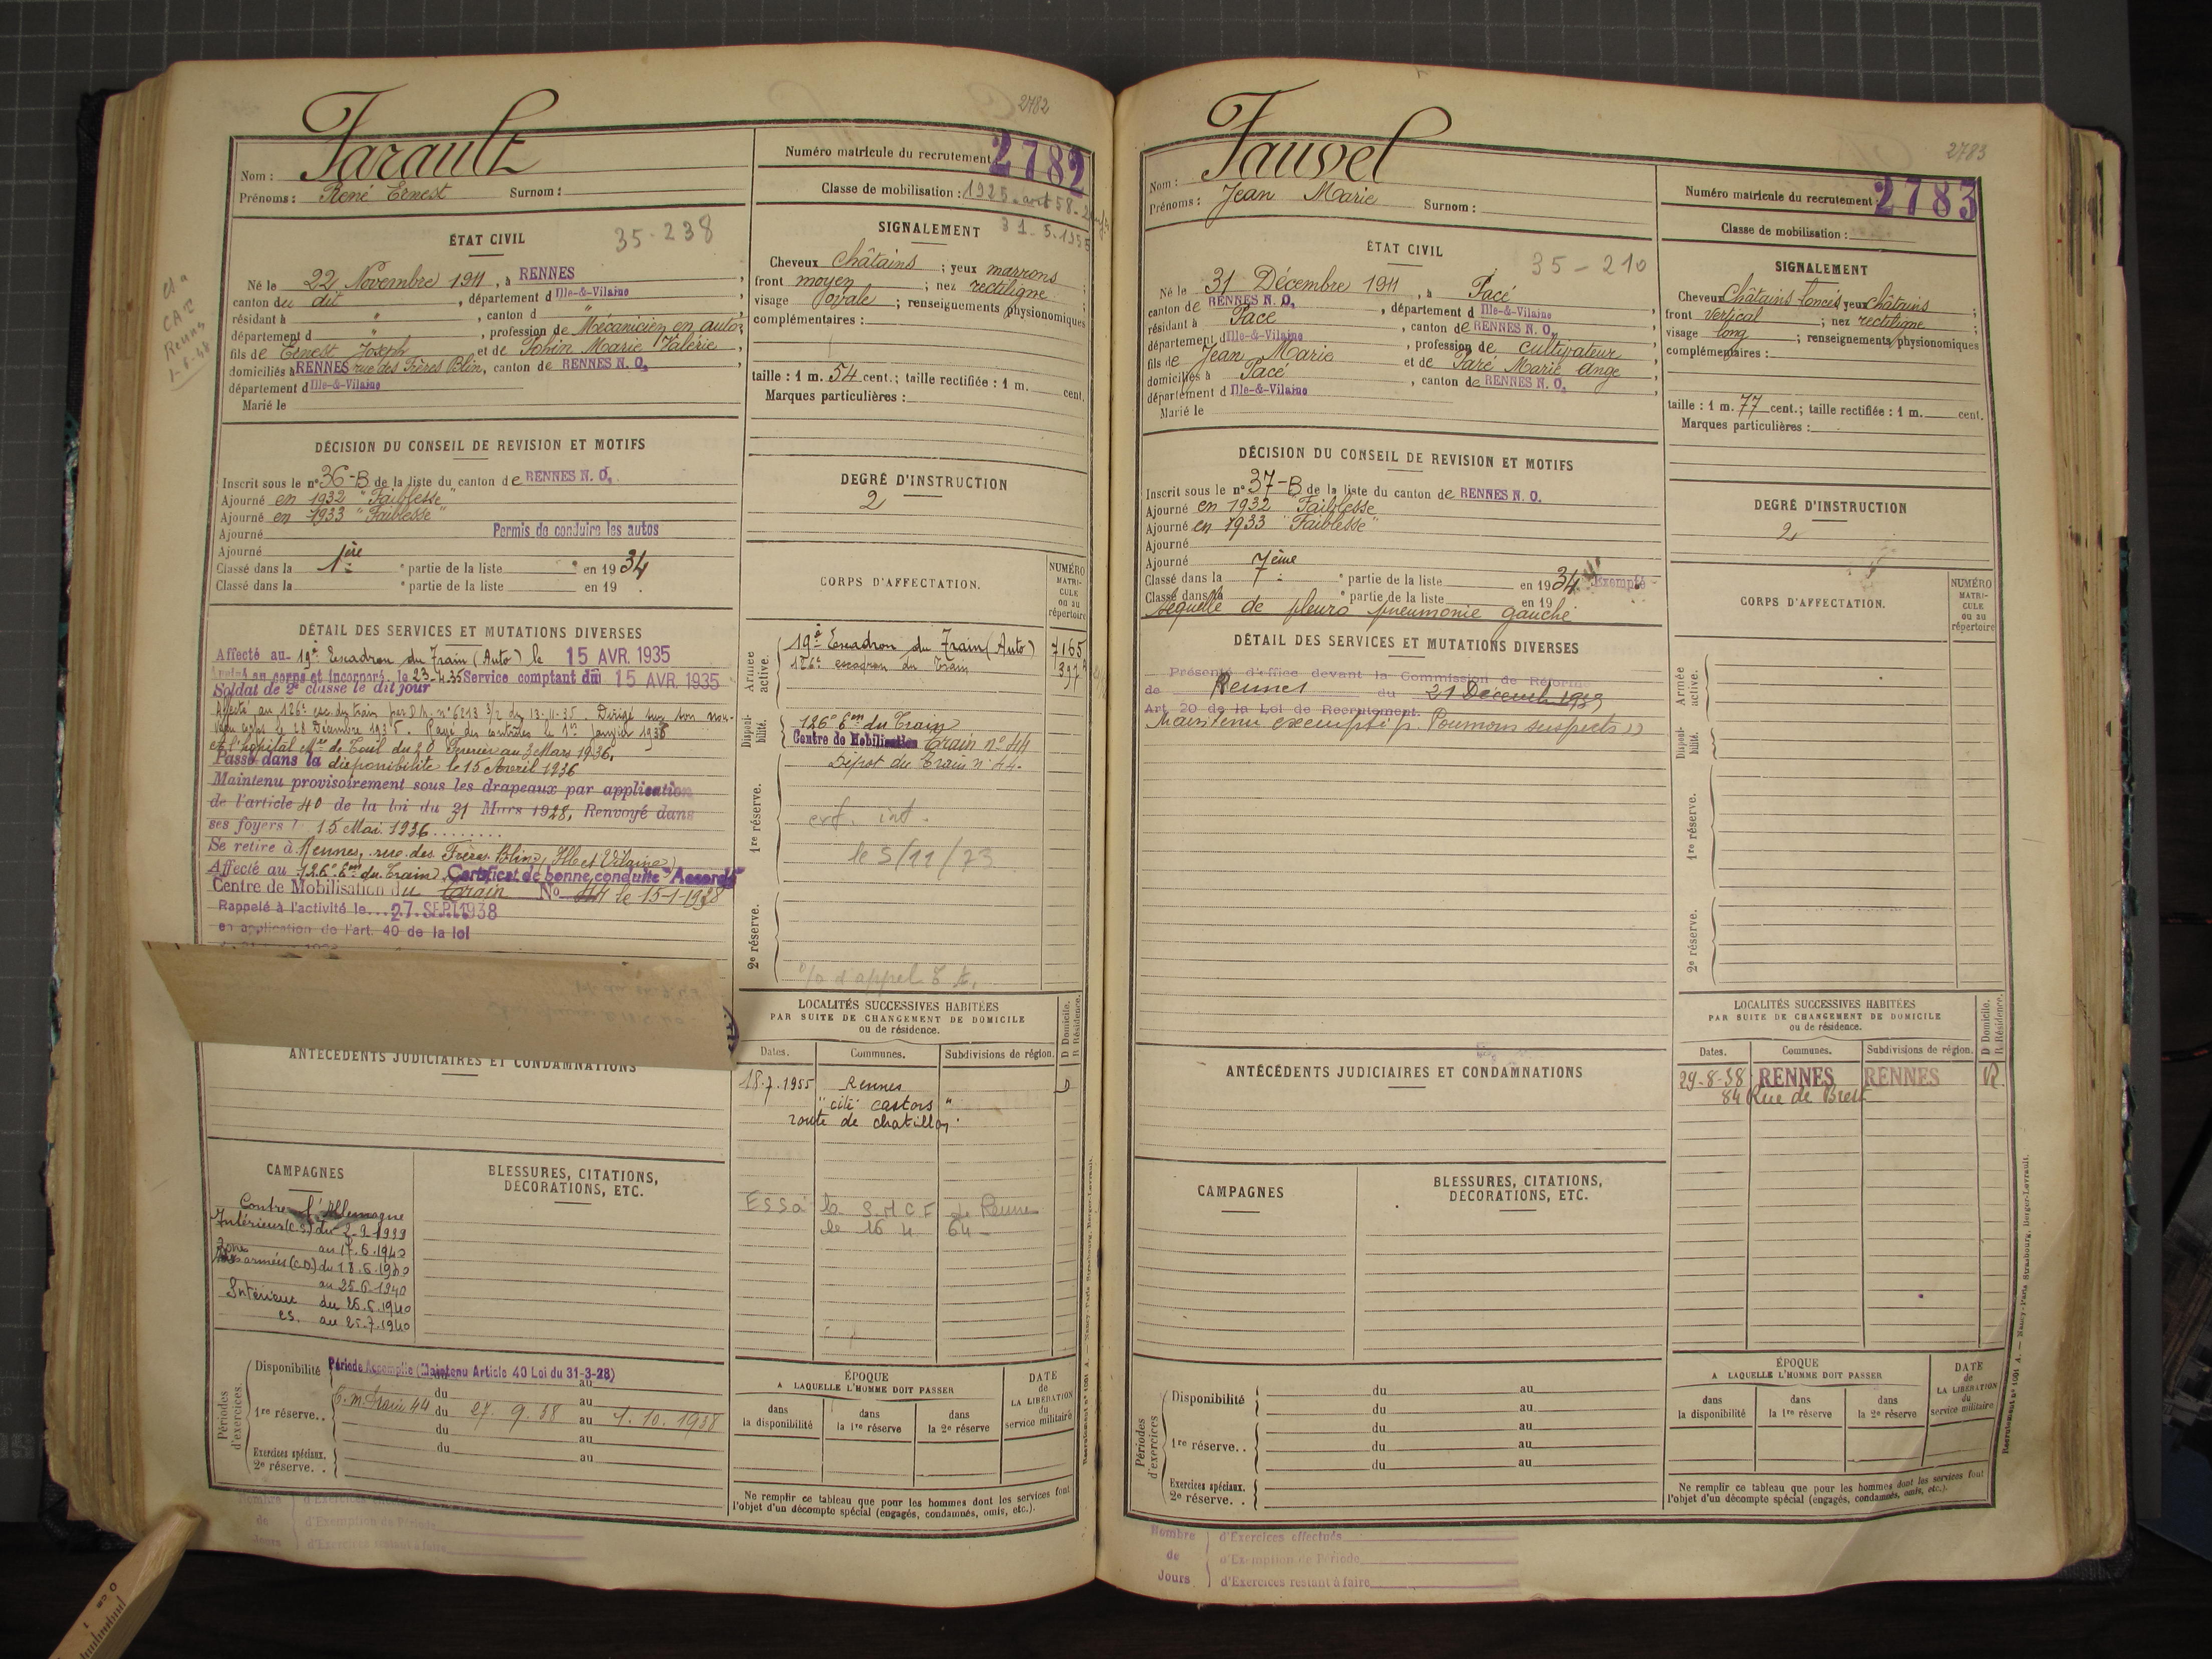 2782
Farault
Nom :
Prénoms : René Ernest Surnom :
Numéro matricule du recrutement 2782
Classe de mobilisation : 1925
31.5.1955
ÉTAT CIVIL
35-238
Né le 22 Novembre 1911, à RENNES,
canton du dit, département d Ille-&-Vilaine,
résidant à ", canton d ",
département d ", profession de Mécanicien en autos,
fils de Ernest Joseph et de Marie Valérie,
domiciliés à RENNES rue des Frères Blin, canton de RENNES N. O.,
département d Ille-&-Vilaine
Marié le
SIGNALEMENT
Cheveux châtains ; yeux marrons ;
front moyen ; nez rectiligne ;
visage ovale ; renseignements physionomiques
complémentaires :
taille : 1 m. 54 cent.; taille rectifiée : 1 m. cent.
Marques particulières :
DÉCISION DU CONSEIL DE REVISION ET MOTIFS
Inscrit sous le n° 36-B de la liste du canton de RENNES N. O.
Ajourné en 1932 "Faiblesse"
Ajourné en 1933 "Faiblesse"
Ajourné Permis de conduire les autos
Ajourné
Classé dans la 1ère partie de la liste en 1934
Classé dans la partie de la liste en 19 .
DEGRÉ D'INSTRUCTION
2
DÉTAIL DES SERVICES ET MUTATIONS DIVERSES
Affecté au 19e Escadron du Train (Auto) le 15 AVR. 1935
Arrivé au corps et incorporé le 23-4-35 Service comptant du 15 AVR. 1935
Soldat de 2e classe le dit jour
Affecté au 126e esc. du train par D.M. n° 6213 3/2 du 13-11-35. Dirigé sur son nou-
veau corps le 28 Décembre 1935. Rayé des contrôles le 1er Janvier 1936
à l'hôpital Mre de Toul du 20 Février au 3 Mars 1936.
Passé dans la disponibilité le 15 Avril 1936
Maintenu provisoirement sous les drapeaux par application
de l'article 40 de la loi du 31 Mars 1928, Renvoyé dans
ses foyers l 15 Mai 1936
Se retire à Rennes, rue des Frères Blin, (Ille et Vilaine)
Affecté au 126e Eon du Train. Certificat de bonne conduite "Accordé"
Centre de Mobilisation du train No 44 le 15-1-1938
Rappelé à l'activité le 27 SEPT 1938
en application de l'art. 40 de la loi
CORPS D'AFFECTATION.
NUMÉRO MATRI-CULE ou au répertoire
Armée active.
19e Escadron du Train (Auto) 7165
126e escadron du Train 397
Disponi-bilité.
126e Eon du Train
Centre de Mobilisation Train n° 44
Dépôt du Train n° 44.
1re réserve.
le 5/11/73
2e réserve.
LOCALITÉS SUCCESSIVES HABITÉES
PAR SUITE DE CHANGEMENT DE DOMICILE
ou de résidence.
D Domicile.
R Résidence.
Dates. Communes. Subdivisions de région.
18.7.1955 Rennes D
"cité castors"
route de chatillon
ESSa la S.N.C.F de Rennes
le 16 4 64
ANTÉCÉDENTS JUDICIAIRES ET CONDAMNATIONS
CAMPAGNES
Contre l'Allemagne
Intérieur (C.S.) du 2-9-1939
au 17.6.1940
Zone des armées (CD) du 18.6.1940
au 25.6.1940
Intérieur du 26.6.1940
CS. au 25.7.1940
BLESSURES, CITATIONS,
DÉCORATIONS, ETC.
Périodes d'exercices.
Disponibilité Période Accomplie (Maintenu Article 40 Loi du 31-3-28)
du au
1re réserve.. C.M. Train 44 du 27. 9. 38 au 1. 10. 1938
du au
du au
Exercices spéciaux.
2e réserve. .
ÉPOQUE
A LAQUELLE L'HOMME DOIT PASSER
dans la disponibilité
dans la 1re réserve
dans la 2e réserve
DATE de LA LIBÉRATION du service militaire
Ne remplir ce tableau que pour les hommes dont les services font
l'objet d'un décompte spécial (engagés, condamnés, omis, etc.).
Nombre de Jours
d'Exercices effectués
d'Exemption de Période
d'Exercices restant à faire
2783
Fauvel
Nom :
Prénoms : Jean Marie Surnom :
Numéro matricule du recrutement 2783
Classe de mobilisation :
ÉTAT CIVIL
35-210
Né le 31 Décembre 1911, à Pacé,
canton de RENNES N. O., département d Ille-&-Vilaine,
résidant à Pacé, canton de RENNES N. O.,
département d Ille-&-Vilaine, profession de cultivateur,
fils de Jean Marie et de Paré Marie Ange,
domiciliés à Pacé, canton de RENNES N. O.,
département d Ille-&-Vilaine
Marié le
SIGNALEMENT
Cheveux châtains foncés yeux châtains ;
front vertical ; nez rectiligne ;
visage long ; renseignements physionomiques
complémentaires :
taille : 1 m. 77 cent.; taille rectifiée : 1 m. cent.
Marques particulières :
DÉCISION DU CONSEIL DE REVISION ET MOTIFS
Inscrit sous le n° 37-B de la liste du canton de RENNES N. O.
Ajourné en 1932 Faiblesse
Ajourné en 1933 "Faiblesse"
Ajourné
Ajourné
Classé dans la 7ème partie de la liste en 1934 Exempté
Classé dans la partie de la liste en 19
Séquelle de pleuro pneumonie gauche
DEGRÉ D'INSTRUCTION
2
DÉTAIL DES SERVICES ET MUTATIONS DIVERSES
Présenté d'office devant la Commission de Réforme
de Rennes du 21 Décemb. 1939
Art. 20 de la Loi de Recrutement.
Maintenu exempté p. Poumons suspects
CORPS D'AFFECTATION.
NUMÉRO MATRI-CULE ou au répertoire
Armée active.
Disponi-bilité.
1re réserve.
2e réserve.
ANTÉCÉDENTS JUDICIAIRES ET CONDAMNATIONS
LOCALITÉS SUCCESSIVES HABITÉES
PAR SUITE DE CHANGEMENT DE DOMICILE
ou de résidence.
D Domicile.
R Résidence.
Dates. Communes. Subdivisions de région.
29-8-38 RENNES RENNES R.
84 Rue de Brest
CAMPAGNES
BLESSURES, CITATIONS,
DÉCORATIONS, ETC.
Périodes d'exercices
Disponibilité du au
du au
du au
1re réserve. . du au
du au
Exercices spéciaux.
2e réserve. .
ÉPOQUE
A LAQUELLE L'HOMME DOIT PASSER
dans la disponibilité
dans la 1re réserve
dans la 2e réserve
DATE de LA LIBÉRATION du service militaire
Ne remplir ce tableau que pour les hommes dont les services font
l'objet d'un décompte spécial (engagés, condamnés, omis, etc.).
Nombre de Jours
d'Exercices effectués
d'Exemption de Période
d'Exercices restant à faire